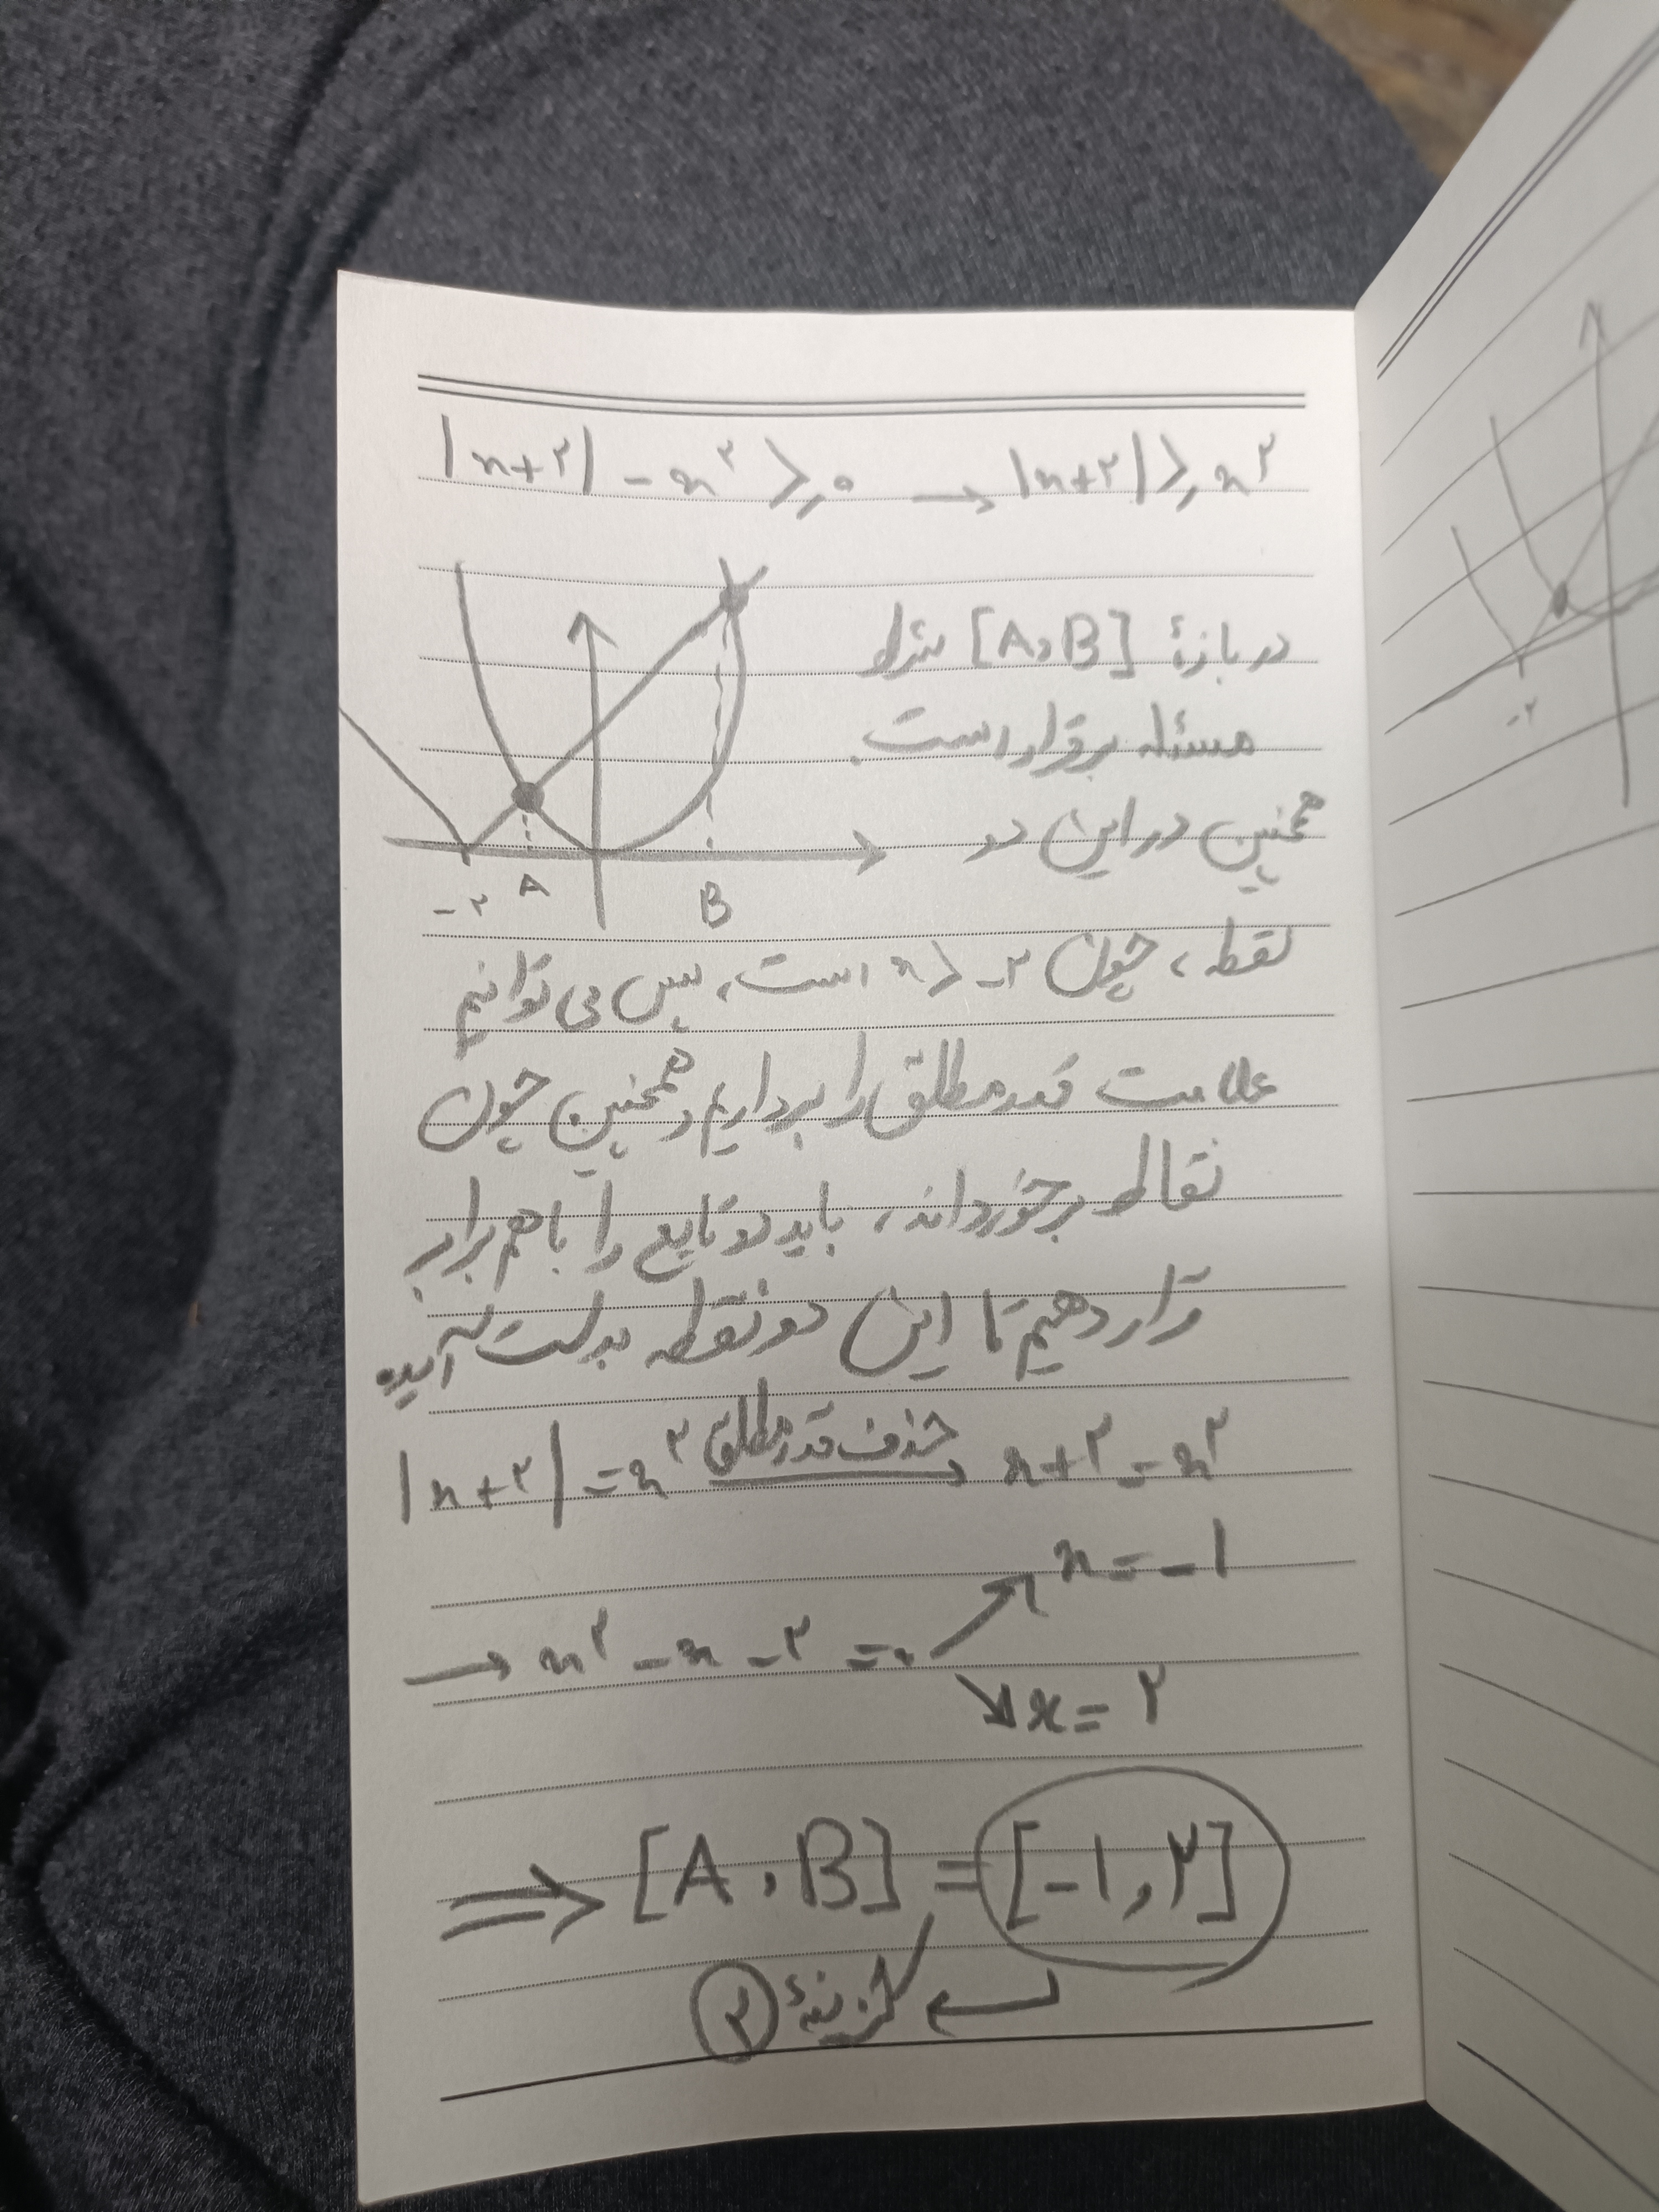 |x+۲| - x^۲ ≥ ۰ → |x+۲| ≥ x^۲
در بازهٔ [A,B] شرط
مسئله برقرار است.
همچنین در این دو
-۲ A B
نقطه، چون -۲ < x است، پس می توانیم
علامت قدر مطلق را برداریم و همچنین چون
نقاط برخورد اند، باید دو تابع را با هم برابر
قرار دهیم تا این دو نقطه بدست آیند
|x+۲| = x^۲ حذف قدر مطلق → x+۲ = x^۲
→ x^۲ - x - ۲ = ۰
x = -۱
x = ۲
⇒ [A,B] = [-۱,۲]
گزینهٔ ۲
-۲